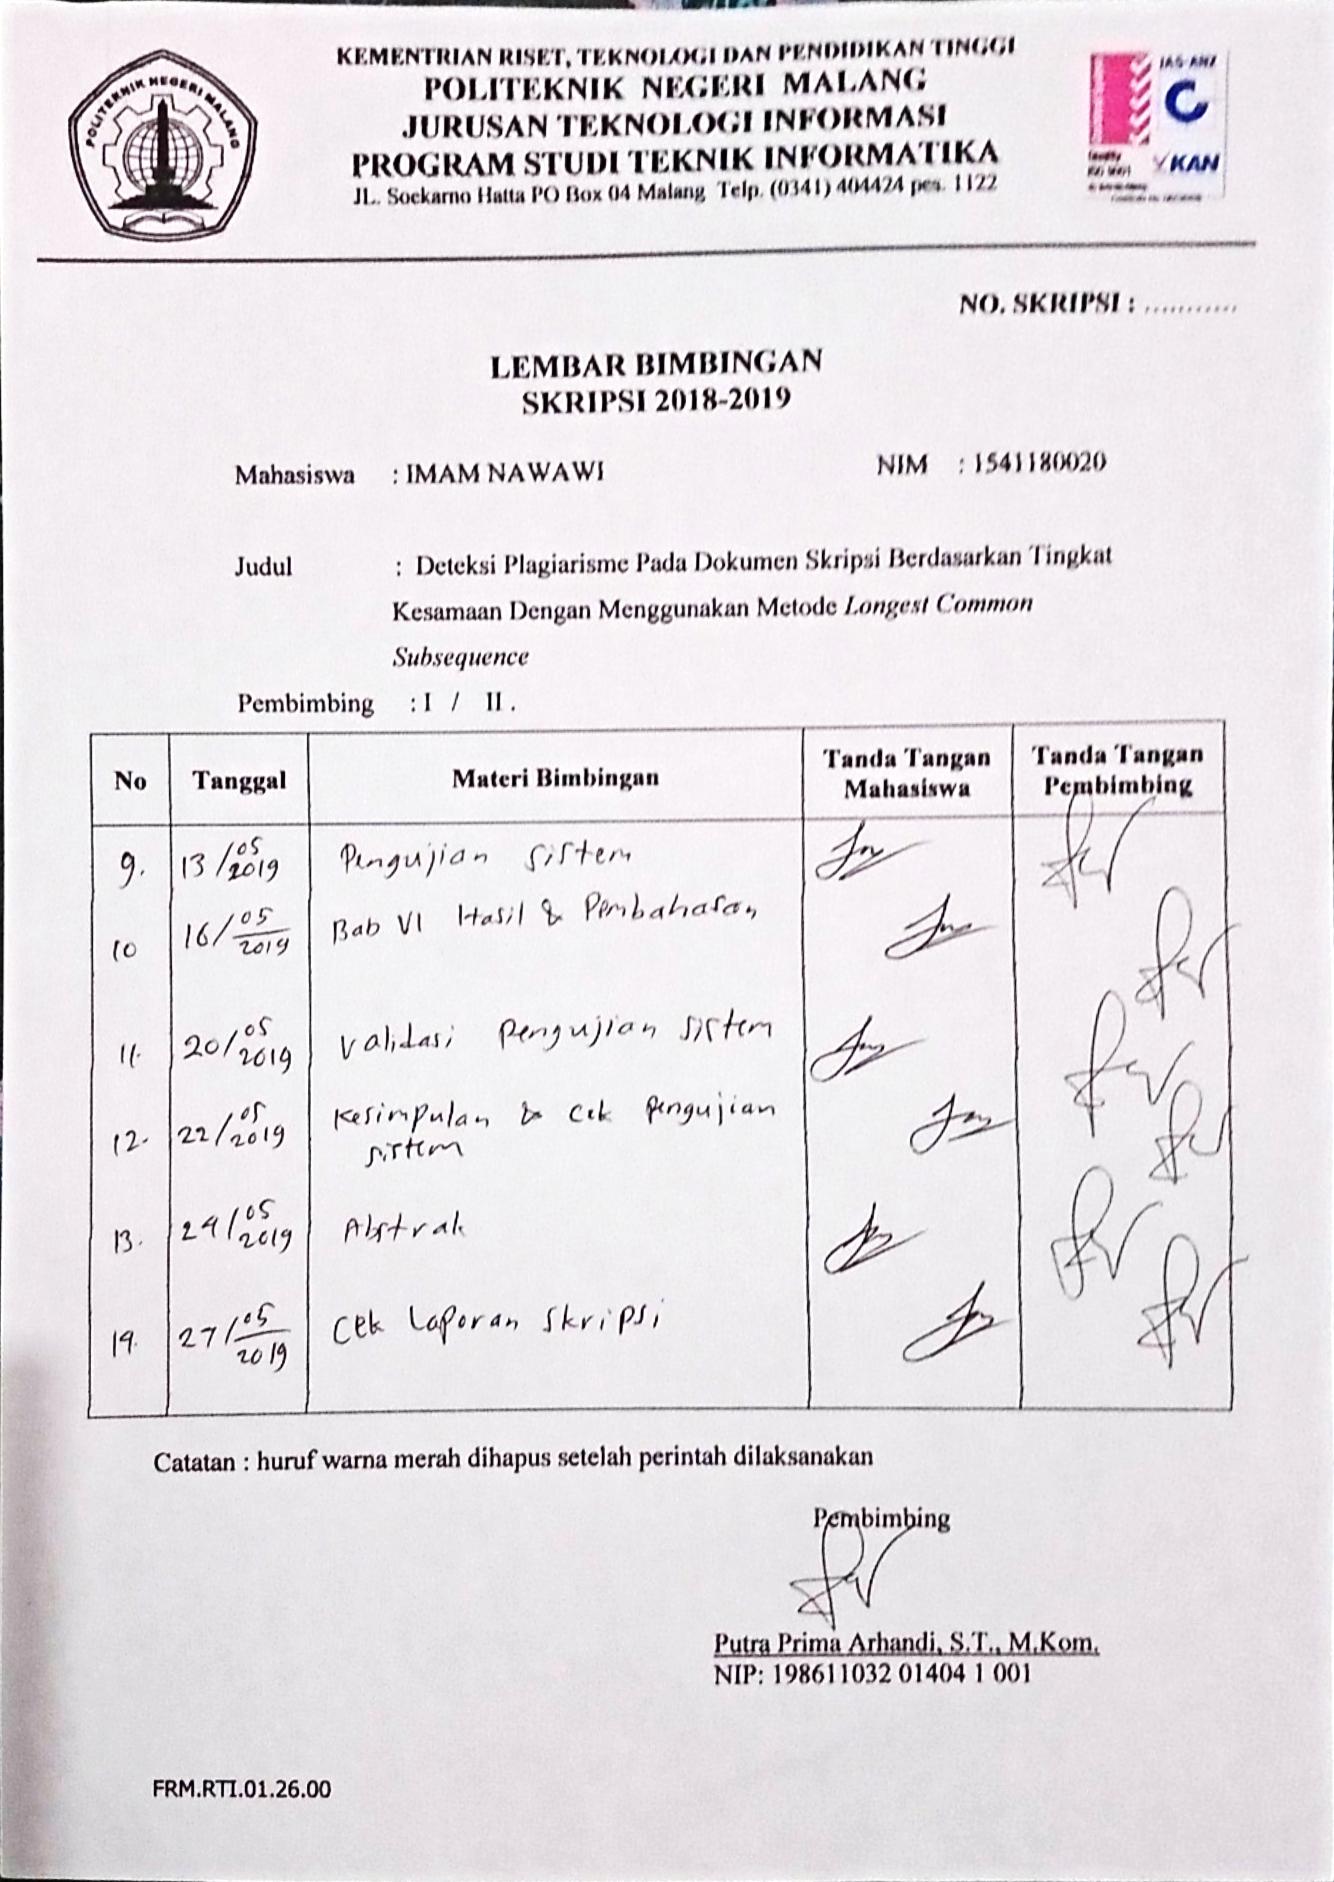 POLITEKNIK NEGERI MALANG
KEMENTRIAN RISET, TEKNOLOGI DAN PENDIDIKAN TINGGI
POLITEKNIK NEGERI MALANG
JURUSAN TEKNOLOGI INFORMASI
PROGRAM STUDI TEKNIK INFORMATIKA
JL. Soekarno Hatta PO Box 04 Malang Telp. (0341) 404424 pes. 1122
JAS-ANZ
ISO 9001
KAN
NO. SKRIPSI : ...........
LEMBAR BIMBINGAN
SKRIPSI 2018-2019
Mahasiswa : IMAM NAWAWI NIM : 1541180020
Judul : Deteksi Plagiarisme Pada Dokumen Skripsi Berdasarkan Tingkat
Kesamaan Dengan Menggunakan Metode Longest Common
Subsequence
Pembimbing : I / II .
No Tanggal Materi Bimbingan Tanda Tangan Mahasiswa Tanda Tangan Pembimbing
9. 13/05 2019 Pengujian sistem
10 16/05 2019 Bab VI Hasil & Pembahasan
11. 20/05 2019 Validasi pengujian sistem
12. 22/05 2019 Kesimpulan & cek pengujian
sistem
13. 24/05 2019 Abstrak
14. 27/05 2019 Cek laporan skripsi
Catatan : huruf warna merah dihapus setelah perintah dilaksanakan
Pembimbing
Putra Prima Arhandi, S.T., M.Kom.
NIP: 198611032 01404 1 001
FRM.RTI.01.26.00